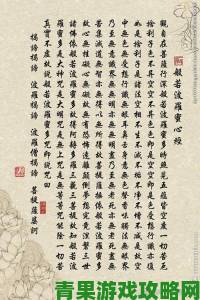 般若波羅蜜心經
觀自在菩薩行深般若波羅蜜多時照見五蘊皆空度一切苦
厄舍利子色不異空空不異色色即是空空即是色受想行識亦復
如是舍利子是諸法空相不生不滅不垢不淨不增不減是故空
中無色無受想行識無眼耳鼻舌身意無色聲香味觸法無眼界
乃至無意識界無無明亦無無明盡乃至無老死亦無老死盡無
苦集滅道無智亦無得以無所得故菩提薩埵依般若波羅蜜多
故心無罣礙無罣礙故無有恐怖遠離顛倒夢想究竟涅槃三世
諸佛依般若波羅蜜多故得阿耨多羅三藐三菩提故知般若波
羅蜜多是大神咒是大明咒是無上咒是無等等咒能除一切苦
真實不虛故說般若波羅蜜多咒即說咒曰
揭諦揭諦 波羅揭諦 波羅僧揭諦 菩提薩婆訶
青果游戏攻略网